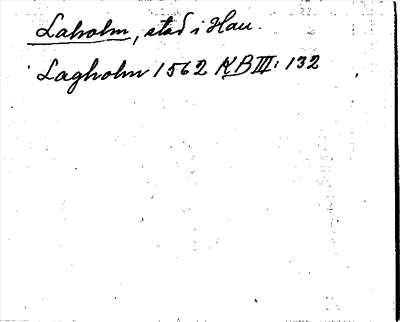 Laholm, stad i Hall.
Lagholm 1562 KB III: 132